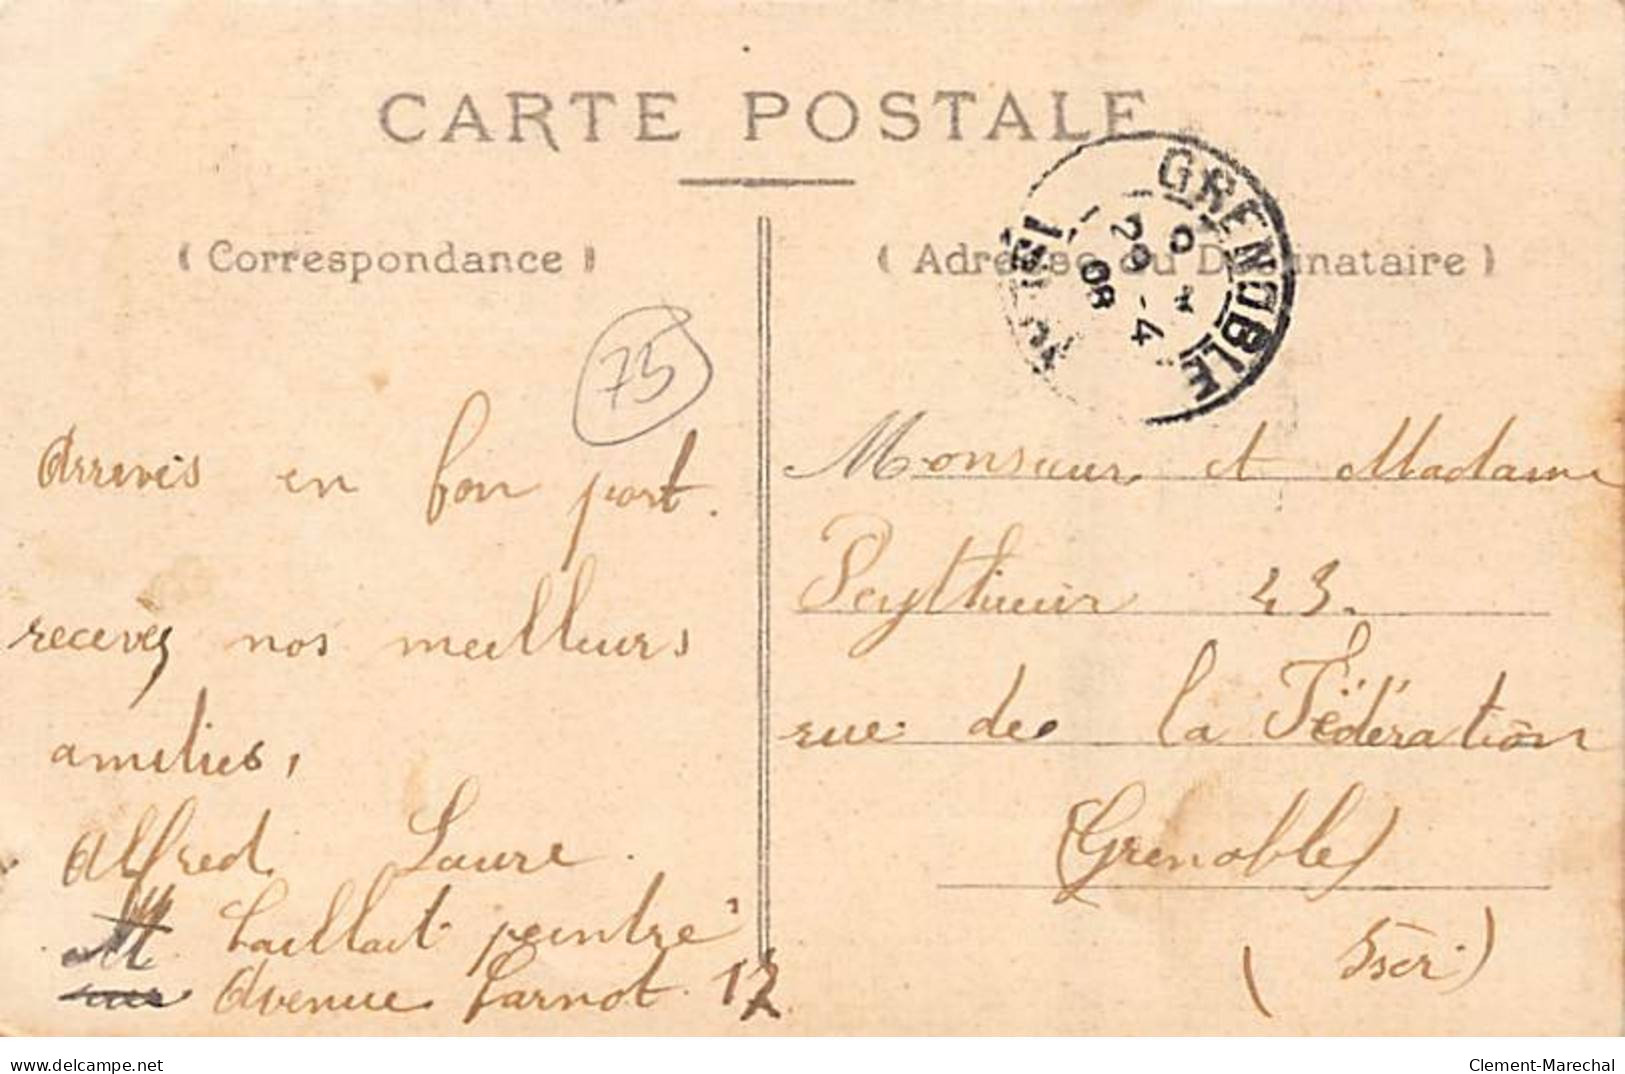 CARTE POSTALE
( Correspondance )
( Adresse du Destinataire )
GRENOBLE
ISÈRE
29 - 4
08
75
Arrivés en bon port.
recevez nos meilleurs
amitiés,
Alfred Laure.
M. peintre
Avenue Carnot 17
Monsieur et Madame
43.
rue de la Fédération
(Grenoble)
(Isèr)
delcampe.net
Clement-Marechal